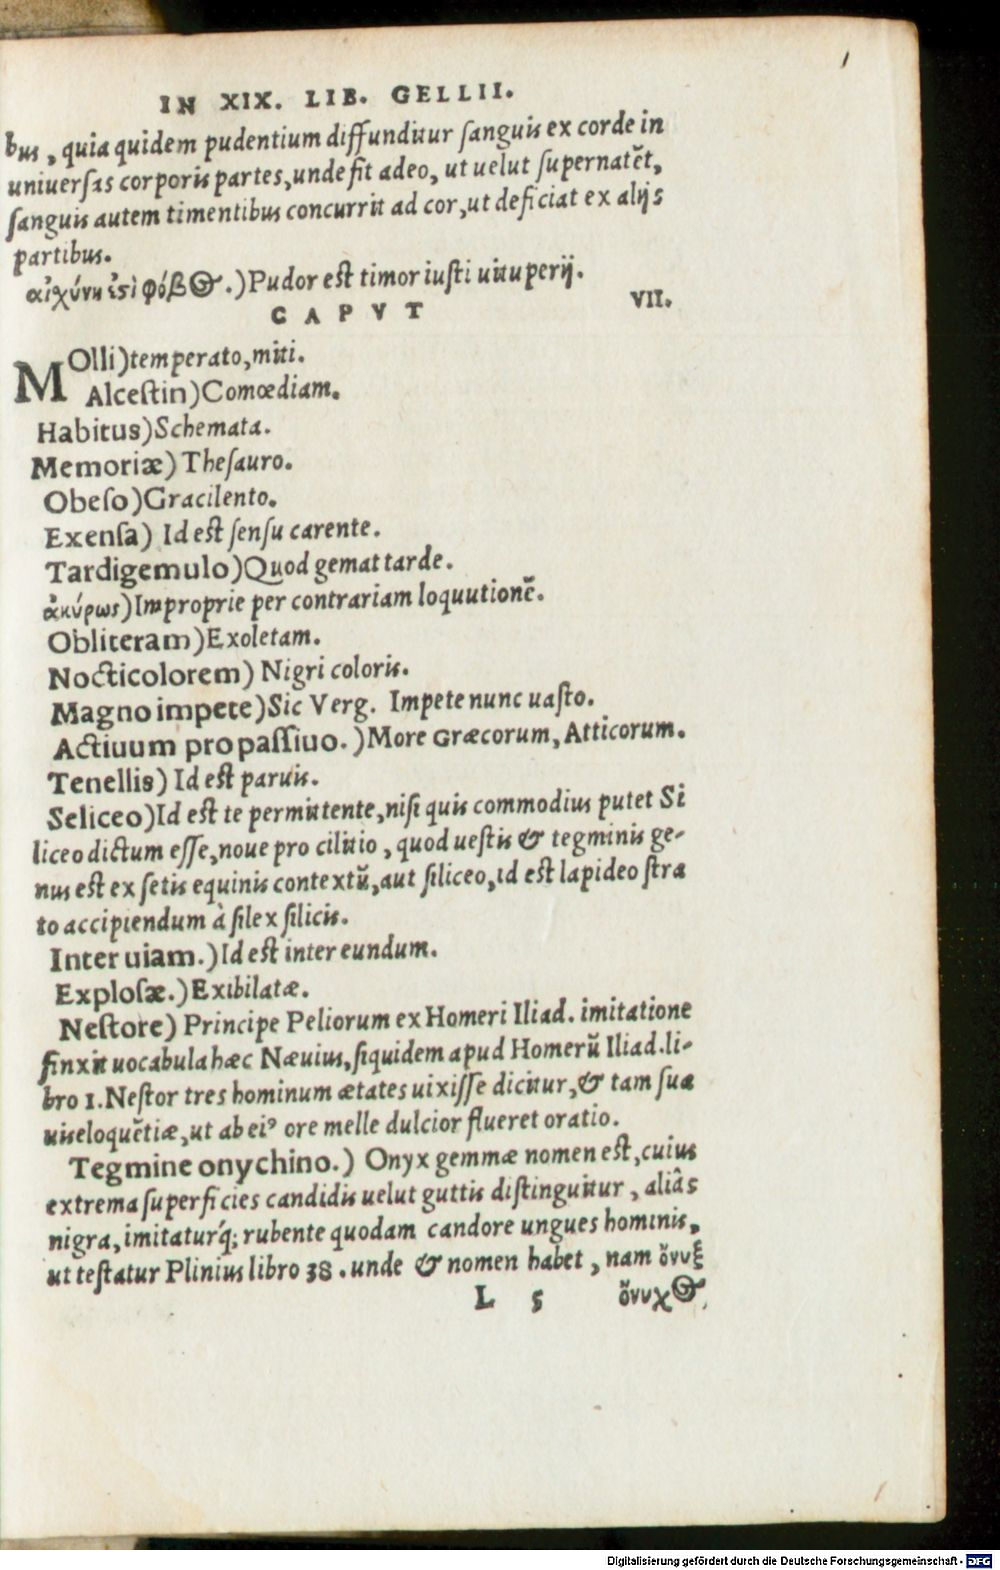 IN XIX. LIB. GELLII.
bus, quia quidem pudentium diffunditur ſanguis ex corde in
uniuerſas corporis partes, unde fit adeo, ut uelut ſupernatēt,
ſanguis autem timentibus concurrit ad cor, ut deficiat ex alijs
partibus.
αἰχύνη ἐςὶ φόβος.) Pudor eſt timor iuſti uituperij.
CAPVT VII.
MOlli) temperato, miti.
Alceſtin) Comœdiam.
Habitus) Schemata.
Memoriæ) Theſauro.
Obeſo) Gracilento.
Exenſa) Id eſt ſenſu carente.
Tardigemulo) Quod gemat tarde.
ἀκύρως) Improprie per contrariam loquutionē.
Obliteram) Exoletam.
Nocticolorem) Nigri coloris.
Magno impete) Sic Verg. Impete nunc uaſto.
Actiuum pro paſſiuo.) More Græcorum, Atticorum.
Tenellis) Id eſt paruis.
Seliceo) Id eſt te permittente, niſi quis commodius putet Si
liceo dictum eſſe, noue pro cilitio, quod ueſtis & tegminis ge-
nus eſt ex ſetis equinis contextū, aut ſiliceo, id eſt lapideo ſtra
to accipiendum à ſilex ſilicis.
Inter uiam.) Id eſt inter eundum.
Exploſæ.) Exibilatæ.
Neſtore) Principe Peliorum ex Homeri Iliad. imitatione
finxit uocabula hæc Næuius, ſiquidem apud Homerū Iliad. li-
bro 1. Neſtor tres hominum ætates uixiſſe dicitur, & tam ſua
uis eloquētiæ, ut ab ei⁹ ore melle dulcior flueret oratio.
Tegmine onychino.) Onyx gemmæ nomen eſt, cuius
extrema ſuperficies candidis uelut guttis diſtinguitur, aliâs
nigra, imitaturq́; rubente quodam candore ungues hominis,
ut teſtatur Plinius libro 38. unde & nomen habet, nam ὄνυξ
L 5 ὄνυχος,
Digitalisierung gefördert durch die Deutsche Forschungsgemeinschaft - DFG